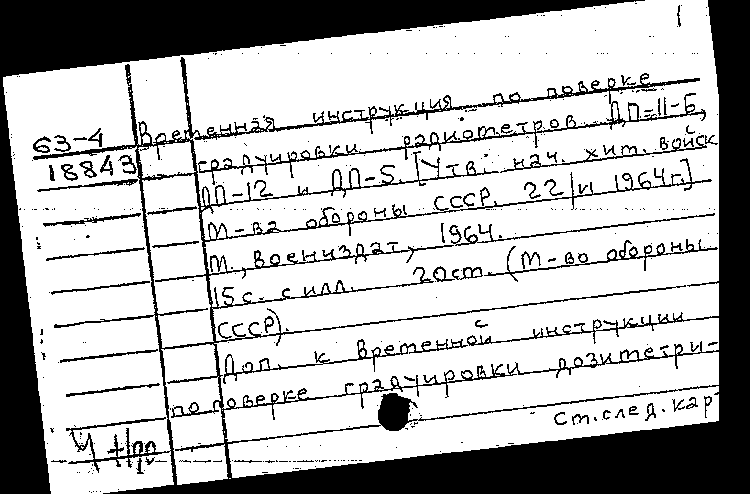 1
63-4 Временная инструкция по поверке
18843 градуировки радиометров ДП-11-Б,
ДП-12 и ДП-5. [Утв. нач. хим. войск
М-ва обороны СССР. 22/ 1964г.]
М., Воениздат, 1964.
15 с. с илл. 20см. (М-во обороны
СССР).
Доп. к Временной инструкции
по поверке градуировки дозиметри-
См. след. кар